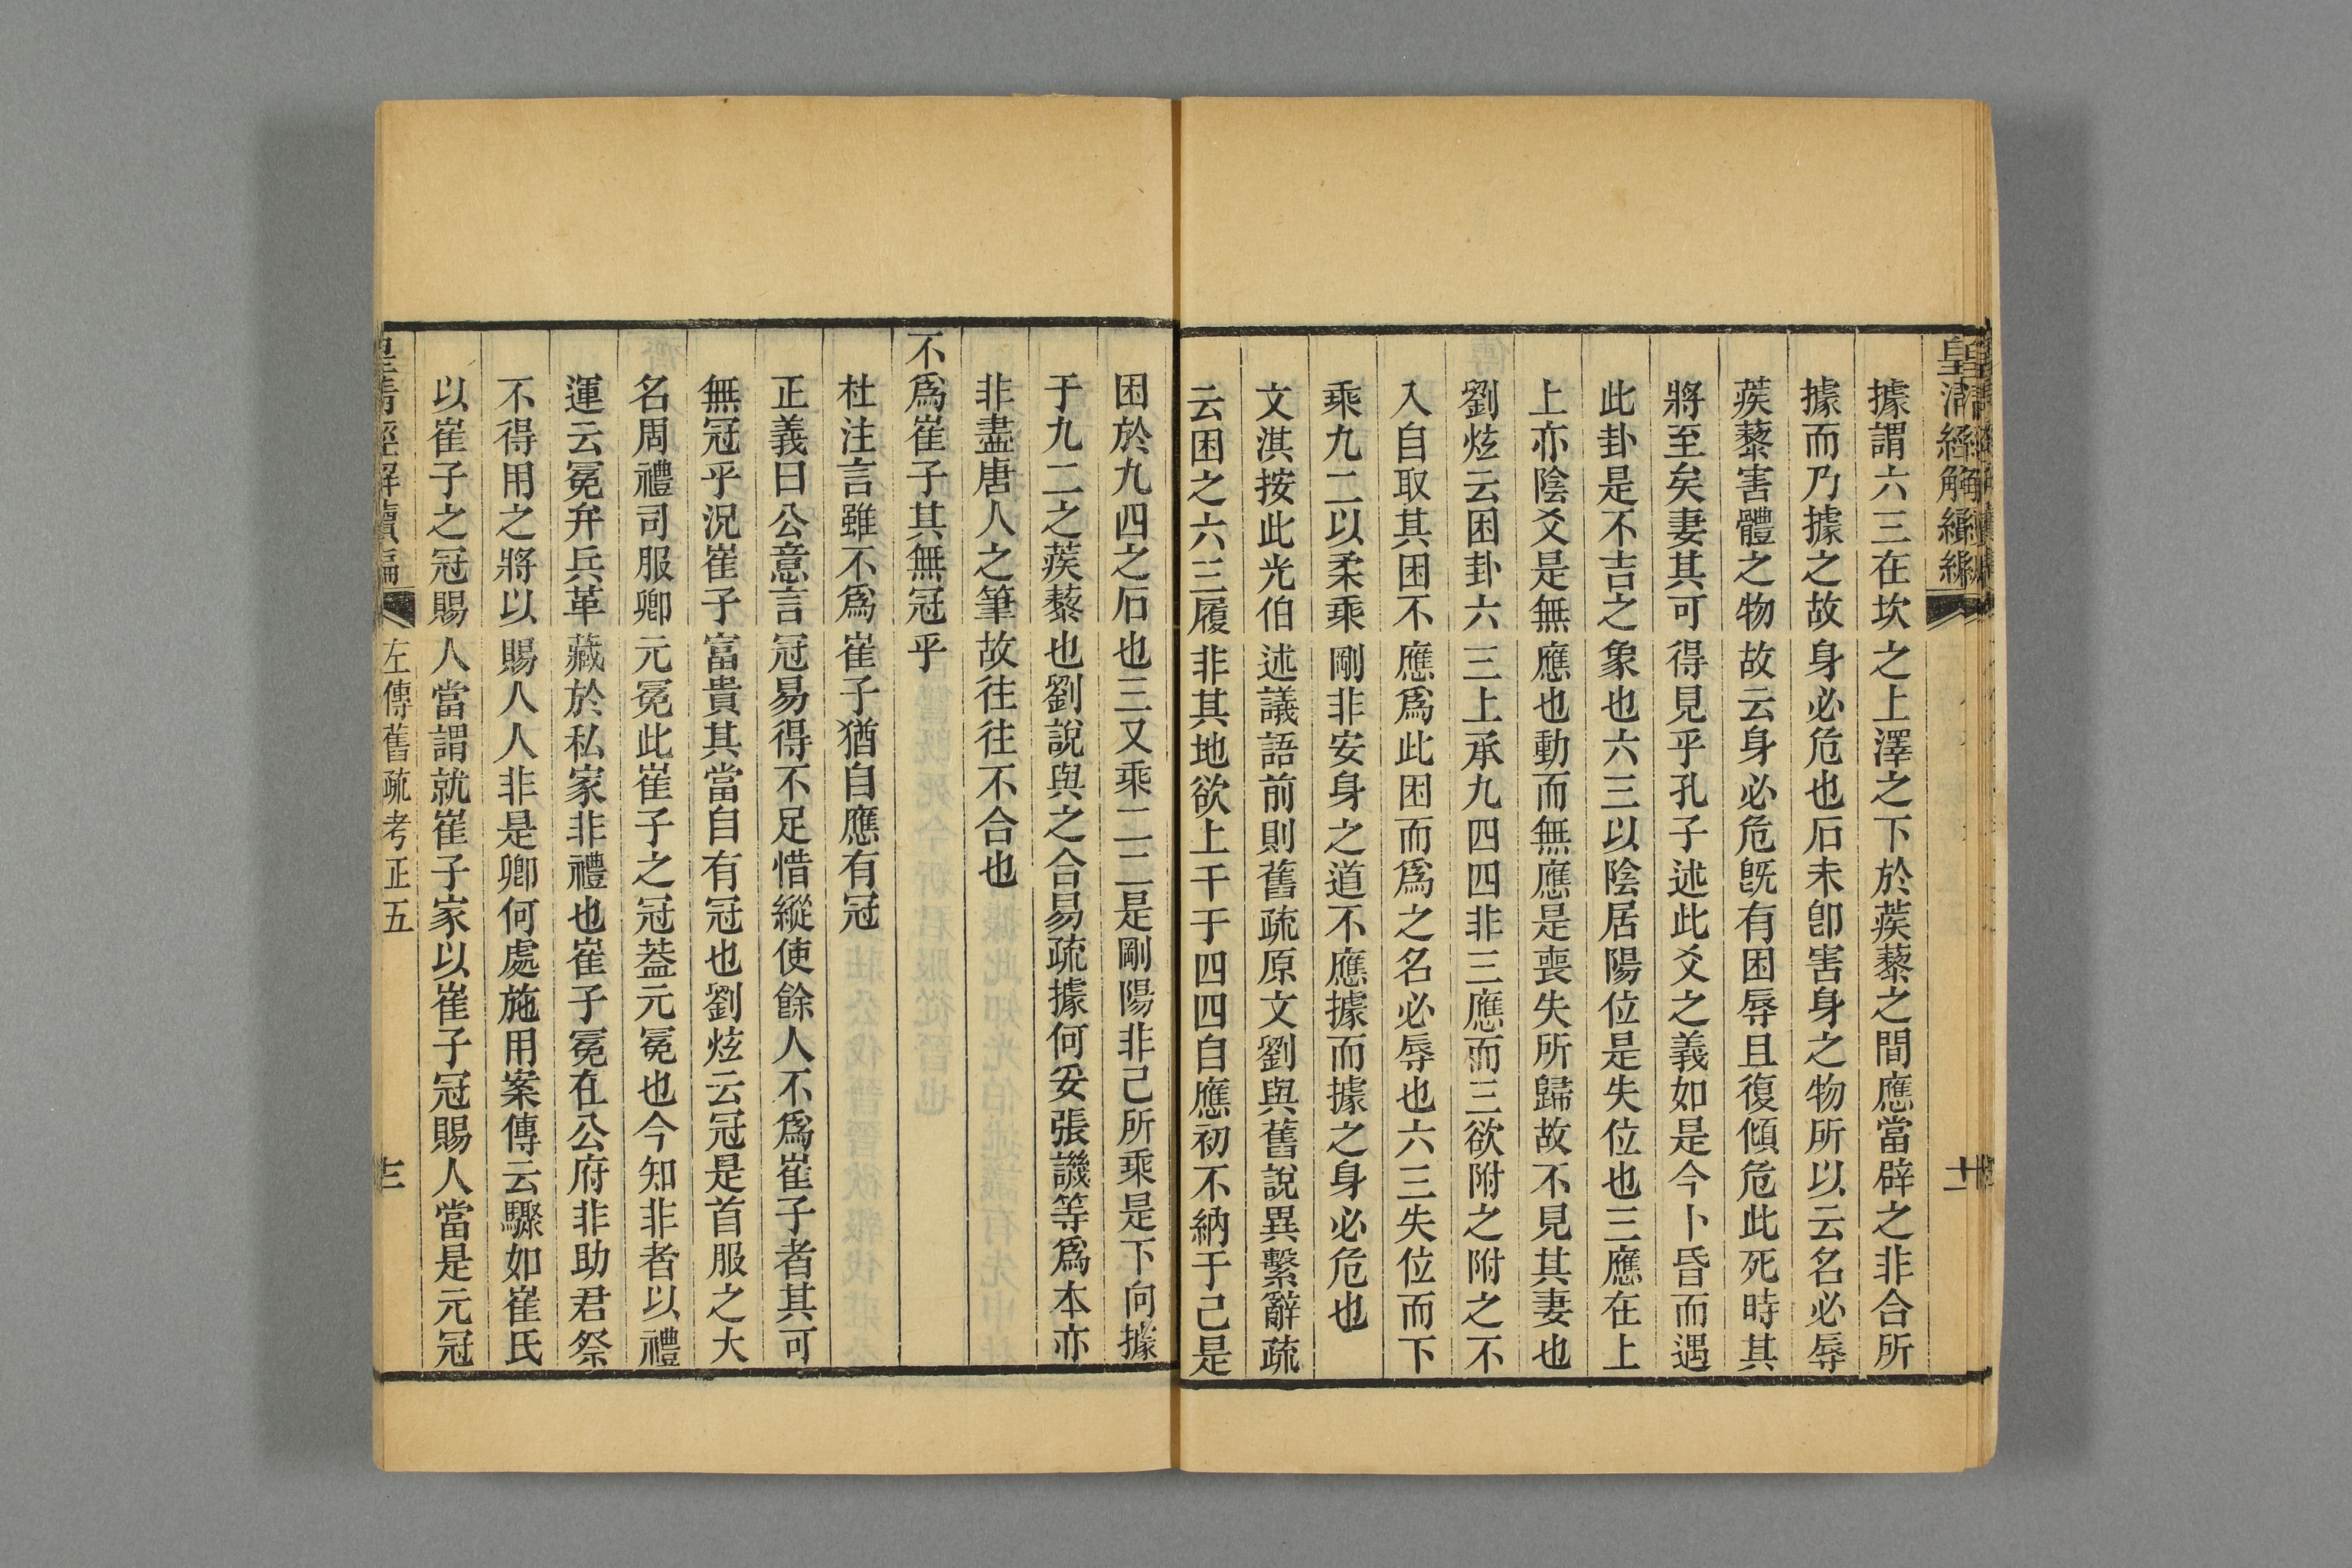 據謂六三在坎之上澤之下於蒺藜之間應當辟之非合所
據而乃據之故身必危也石未卽害身之物所以云名必辱
蒺藜害體之物故云身必危旣有困辱且復傾危此死時其
將至矣妻其可得見乎孔子述此爻之義如是今卜昏而遇
此卦是不吉之象也六三以陰居陽位是失位也三應在上
上亦陰爻是無應也動而無應是喪失所歸故不見其妻也
劉炫云困卦六三上承九四四非三應而三欲附之附之不
入自取其困不應爲此困而爲之名必辱也六三失位而下
乘九二以柔乘剛非安身之道不應據而據之身必危也
文淇按此光伯述議語前則舊疏原文劉與舊說異繫辭疏
云困之六三履非其地欲上干于四四自應初不納于己是
困於九四之石也三又乘二二是剛陽非己所乘是下向據
于九二之蒺藜也劉說與之合易疏據何妥張譏等爲本亦
非盡唐人之筆故往往不合也
不爲崔子其無冠乎
杜注言雖不爲崔子猶自應有冠
正義曰公意言冠易得不足惜縱使餘人不爲崔子者其可
無冠乎況崔子富貴其當自有冠也劉炫云冠是首服之大
名周禮司服卿元冕此崔子之冠葢元冕也今知非者以禮
運云冕弁兵革藏於私家非禮也崔子冕在公府非助君祭
不得用之將以賜人人非是卿何處施用案傳云驟如崔氏
以崔子之冠賜人當謂就崔子家以崔子冠賜人當是元冠
皇清經解續編 左傳舊疏考正五